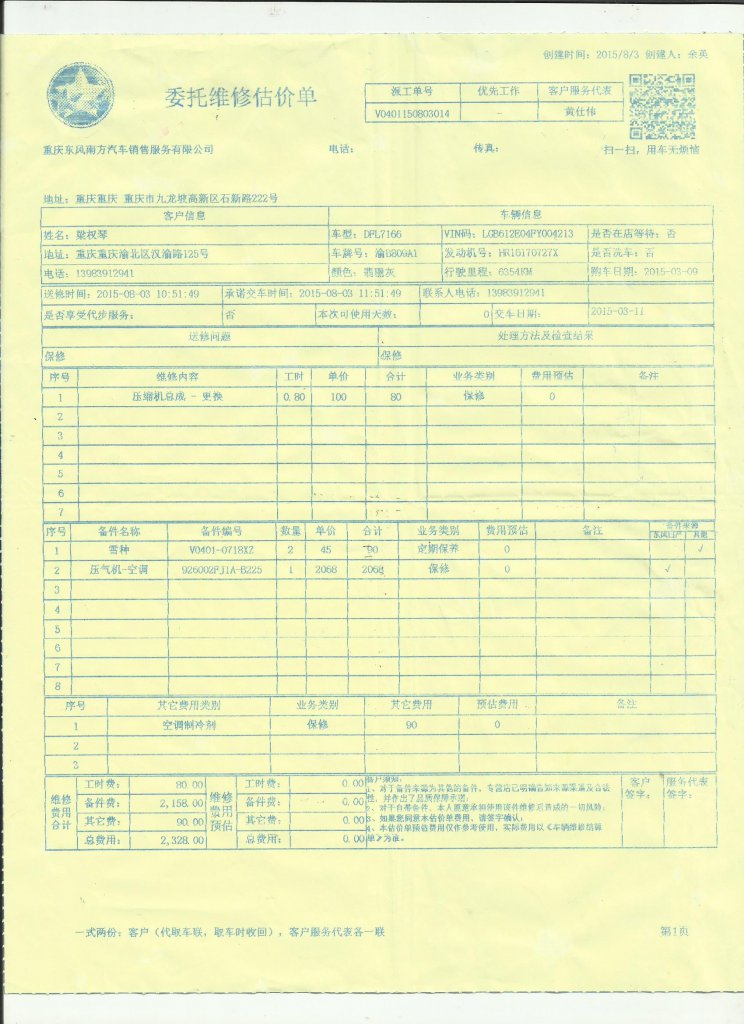 创建时间: 2015/8/3 创建人: 余英
委托维修估价单
派工单号 优先工作 客户服务代表
V0401150803014 - 黄仕伟
重庆东风南方汽车销售服务有限公司 电话: 传真: 扫一扫,用车无烦恼
地址: 重庆重庆 重庆市九龙坡高新区石新路222号
客户信息 车辆信息
姓名: 梁权琴 车型: DFL7166 VIN码: LGB612E04FY004213 是否在店等待: 否
地址: 重庆重庆渝北区汉渝路125号 车牌号: 渝B809A1 发动机号: HR16170727X 是否洗车: 否
电话: 13983912941 颜色: 翡珊灰 行驶里程: 6354KM 购车日期: 2015-03-09
送修时间: 2015-08-03 10:51:49 承诺交车时间: 2015-08-03 11:51:49 联系人电话: 13983912941
是否享受代步服务: 否 本次可使用天数: 0 交车日期: 2015-03-11
送修问题 处理方法及检查结果
保修 保修
序号 维修内容 工时 单价 合计 业务类别 费用预估 备注
1 压缩机总成 - 更换 0.80 100 80 保修 0
2
3
4
5
6
7
序号 备件名称 备件编号 数量 单价 合计 业务类别 费用预估 备注 备件来源
东风日产 其他
1 雪种 V0401-0718XZ 2 45 90 定期保养 0 √
2 压气机-空调 926002FJ1A-B225 1 2068 2068 保修 0 √
3
4
5
6
7
8
序号 其它费用类别 业务类别 其它费用 预估费用 备注
1 空调制冷剂 保修 90 0
2
3
维修费用合计 工时费: 80.00 维修费用预估 工时费: 0.00 客户须知: 客户签字: 服务代表签字:
备件费: 2,158.00 备件费: 0.00 1、对于备件来源为其他的备件,专营店已明确告知来源渠道及合法性,并作出了品质保障承诺;
其它费: 90.00 其它费: 0.00 2、对于自带备件,本人愿意承担使用该件维修后造成的一切风险;
3、如果您同意本估价单费用,请签字确认;
总费用: 2,328.00 总费用: 0.00 4、本估价单预估费用仅作参考使用,实际费用以《车辆维修结算单》为准。
一式两份: 客户(代取车联,取车时收回),客户服务代表各一联 第1页